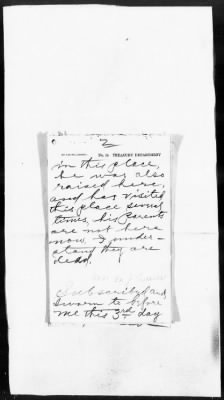 2
No. 15 TREASURY DEPARTMENT
in this place,
he was also
raised here,
and has visited
this place several
times, his parents
are not here
now, I under-
stand they are
dead.
Subscribed and
Sworn to before
me this 3rd day